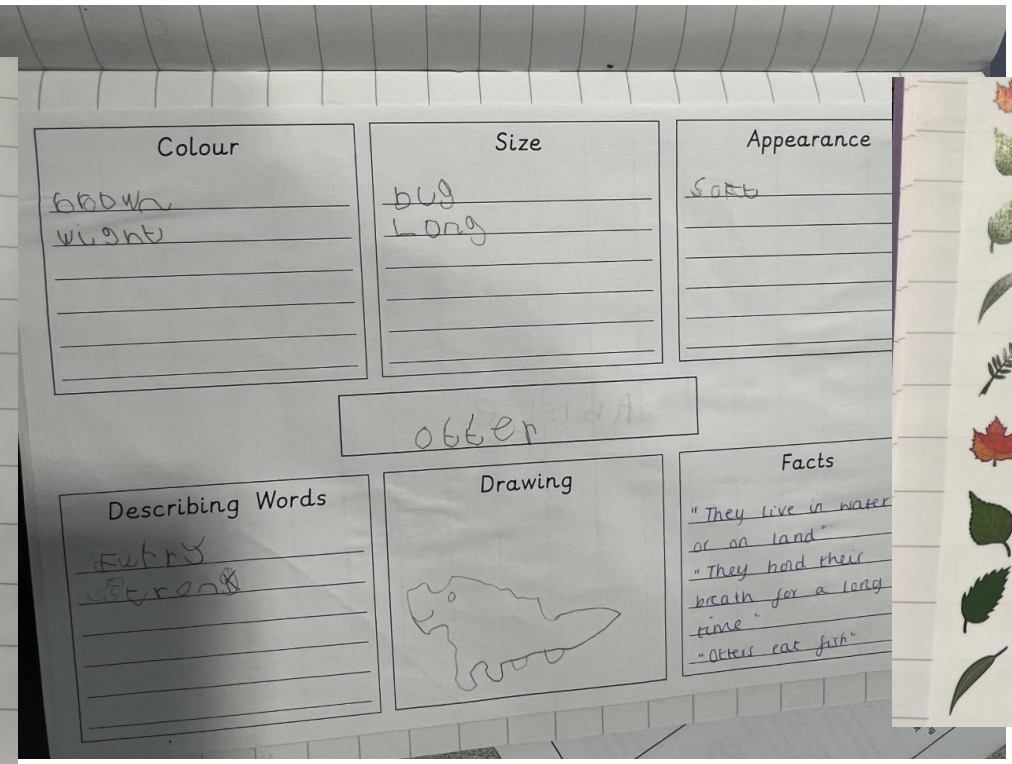 Colour
brown
wight
Size
bug
Long
Appearance
Soft
otter
Describing Words
Furry
Strong
Drawing
Facts
"They live in water
or on land"
"They hold their
breath for a long
time"
"Otters eat fish"